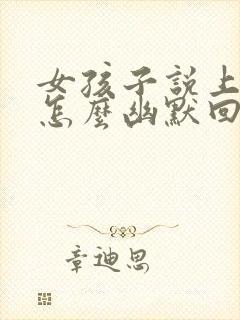 女孩子說上
怎麼幽默回
章迪思